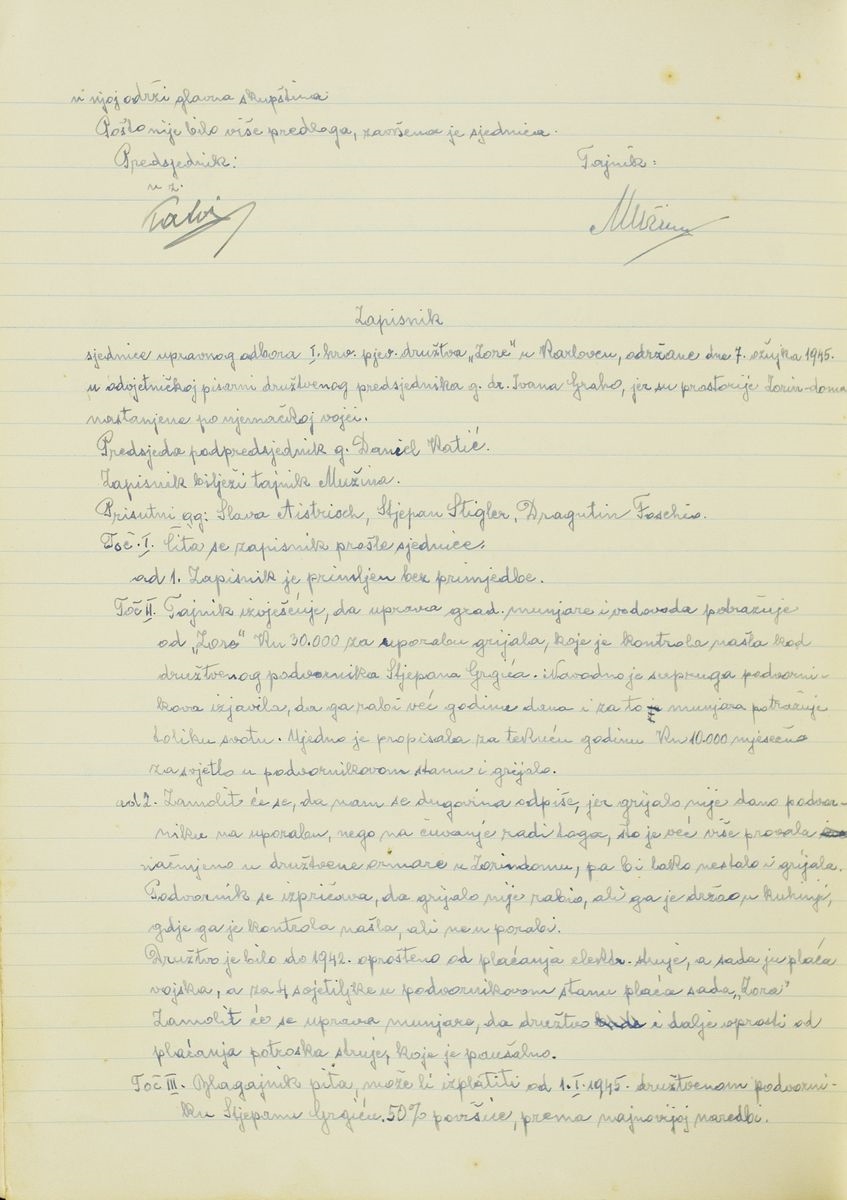 u njoj održi glavna skupština.
Pošto nije bilo više predloga, završena je sjednica.
Predsjednik: Tajnik:
u z.
Zapisnik
sjednice upravnog odbora I. hrv. pjev. društva „Zore" u Karlovcu, održane dne 7. ožujka 1945.
u odvjetničkoj pisarni društvenog predsjednika g. dr. Ivana Grabo, jer su prostorije Zorin-doma
nastanjene po njemačkoj vojsci.
Predsjeda podpredsjednik g. Daniel Katić.
Zapisnik bilježi tajnik Mužina.
Prisutni gg: Slava Aistrich, Stjepan Stigler, Dragutin Foschio.
Toč. I. Čita se zapisnik prošle sjednice.
ad 1. Zapisnik je primljen bez primjedbe.
Toč II. Tajnik izvješćuje, da uprava grad. munjare i vodovoda potražuje
od „Zore" Kn 30.000 za uporabu grijala, koje je kontrola našla kod
društvenog podvornika Stjepana Grgića. Navodno je supruga podvorni-
kova izjavila, da ga rabi već godinu dana i za to munjara potražuje
toliku svotu. Ujedno je propisala za tekuću godinu Kn 10.000 mjesečno
za svjetlo u podvornikovom stanu i grijalo.
ad 2. Zamolit će se, da nam se dugovina odpiše, jer grijalo nije dano podvor-
niku na uporabu, nego na čuvanje radi toga, što je već više provala
načinjeno u društvene ormare u Zorindomu, pa bi tako nestalo i grijala.
Podvornik se izpričava, da grijalo nije rabio, ali ga je držao u kuhinji,
gdje ga je kontrola našla, ali ne u porabi.
Društvo je bilo do 1942. oprošteno od plaćanja elektr. struje, a sada ju plaća
vojska, a za 4 svjetiljke u podvornikovom stanu plaća sada „Zora"
Zamolit će se uprava munjare, da društvo i dalje oprosti od
plaćanja potroška struje, koje je poušalno.
Toč III. Blagajnik pita, može li izplatiti od 1. I. 1945. društvenom podvorni-
ku Stjepanu Grgiću 50% povišice, prema najnovijoj naredbi.